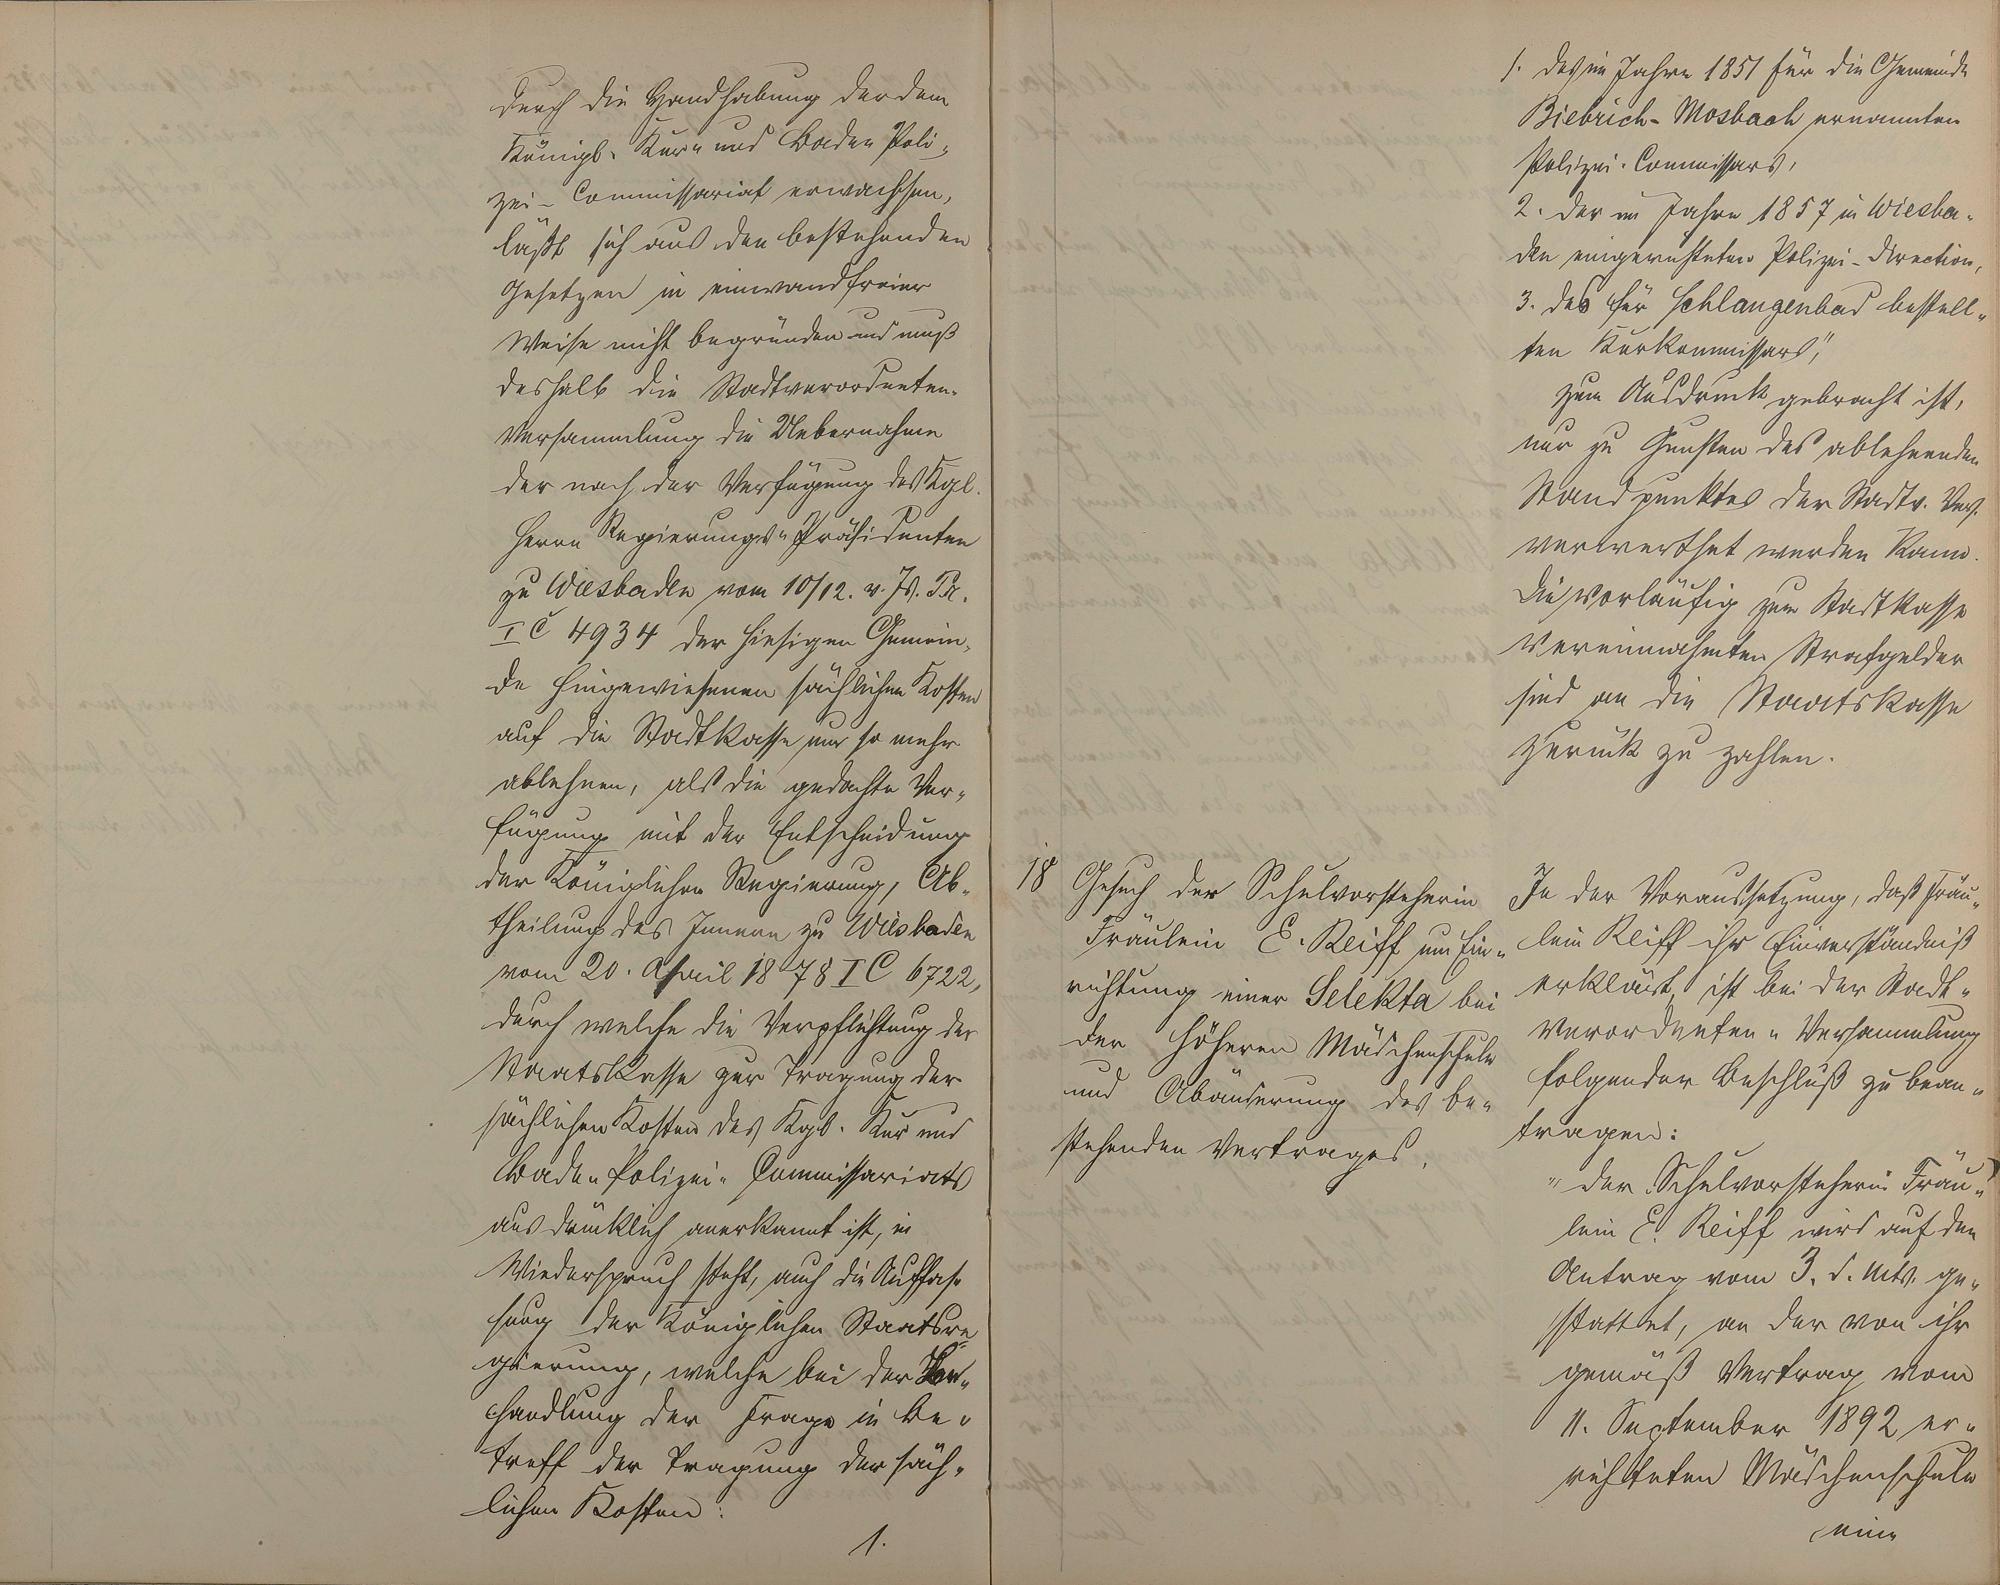 durch die Handhabung der dem
Königl. Kur- und Bade-Poli-
zei-Commissariat erwachsen,
läßt sich aus den bestehenden
Gesetzen in einwandfreier
Weise nicht begründen und muß
deshalb die Stadtverordneten-
Versammlung die Uebernahme
der nach der Verfügung des Kgl.
Herrn Regierungs-Präsidenten
zu Wiesbaden vom 10/12. v. Js. Pr.
I C 4934 der hiesigen Gemein-
de hingewiesenen sächlichen Kosten
auf die Stadtkasse um so mehr
ablehnen, als die gedachte Ver-
fügung mit der Entscheidung
der Königlichen Regierung, Ab-
theilung des Innern zu Wiesbaden
vom 20. April 1878 I C 6722,
durch welche die Verpflichtung der
Staatskasse zur Tragung der
sächlichen Kosten des Kgl. Kur und
Bade-Polizei-Commissariats
ausdrücklich anerkannt ist, in
Wiederspruch steht, auch die Auffas-
sung der Königlichen Staatsre-
gierung, welche bei der Ver-
handlung der Frage in Be-
treff der Tragung der säch-
lichen Kosten:
1.
1. des im Jahre 1851 für die Gemeinde
Biebrich-Mosbach ernannten
Polizei-Commissars,
2. der im Jahre 1857 in Wiesba-
den eingerichteten Polizei-Direction,
3. des für Schlangenbad bestell-
ten Kurkommissars,"
zum Ausdruck gebracht ist,
nur zu Gunsten des ablehnenden
Standpunktes der Stadtv. Vers.
verwerthet werden kann.
Die vorläufig zur Stadtkasse
vereinnahmten Strafgelder
sind an die Staatskasse
zurück zu zahlen.
18 Gesuch der Schulvorsteherin
Fräulein E. Reiff um Ein-
richtung einer Selekta bei
der höheren Mädchenschule
und Abänderung des be-
stehenden Vertrages.
In der Voraussetzung, daß Fräu-
lein Reiff ihr Einverständniß
erklärt, ist bei der Stadt-
verordneten-Versammlung
folgender Beschluß zu bean-
tragen:
"Der Schulvorsteherin Fräu-
lein E. Reiff wird auf den
Antrag vom 3. d. Mts. ge-
stattet, an der von ihr
gemäß Vertrag vom
11. September 1892 er-
richteten Mädchenschule
eine